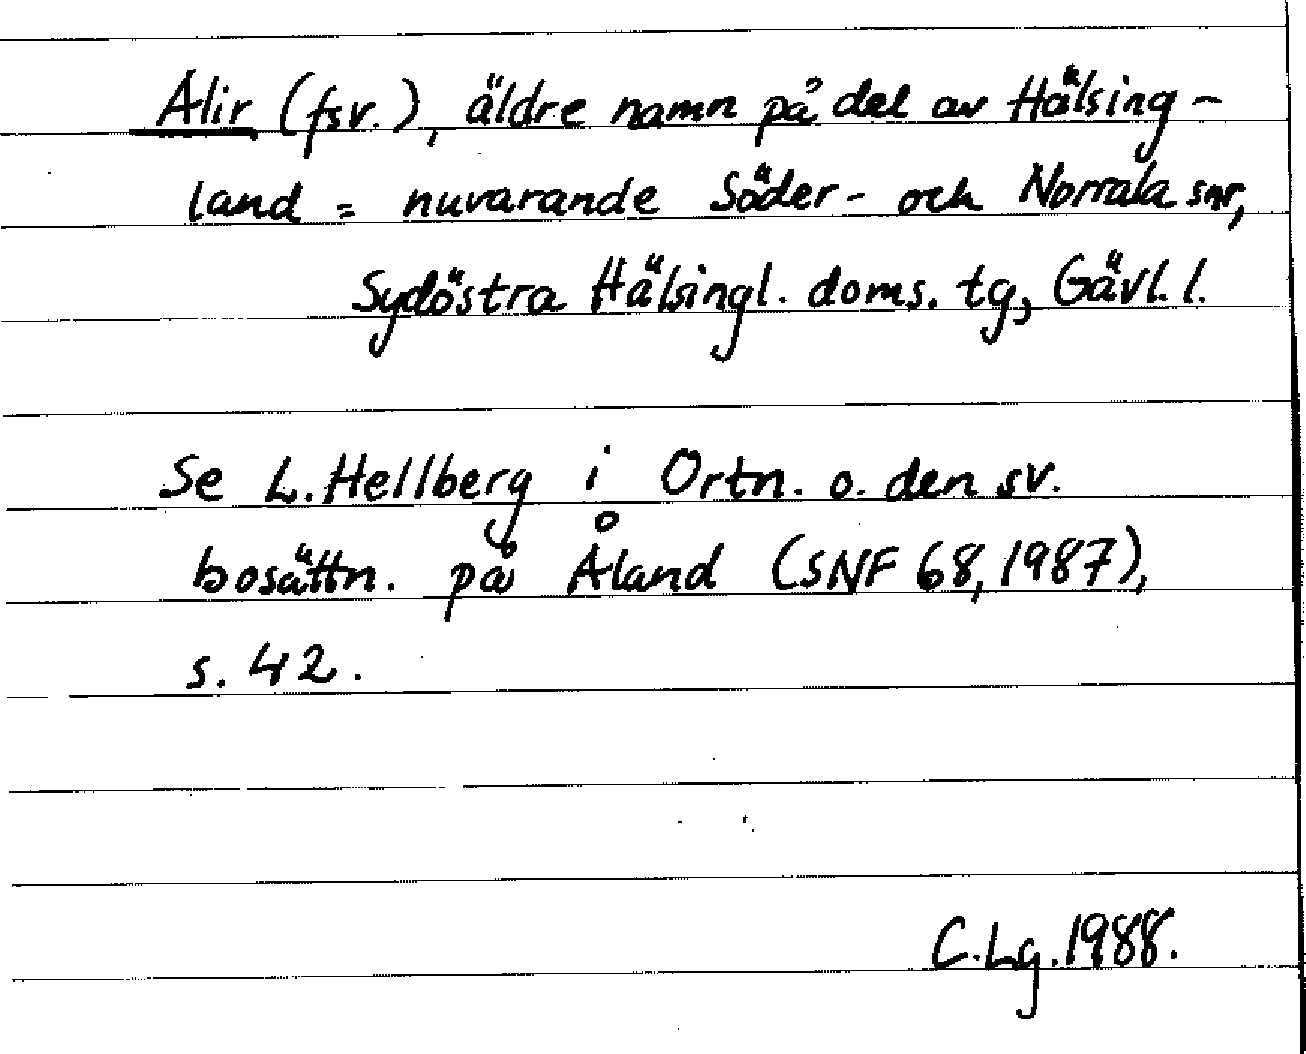 Alir (fsv.), äldre namn på del av Hälsing-
land = nuvarande Söder- och Norrala snr,
Sydöstra Hälsingl. doms. tg, Gävl. l.
Se L. Hellberg i Ortn. o. den sv.
bosättn. på Åland (SNF 68, 1987),
s. 42.
C. Lg. 1988.